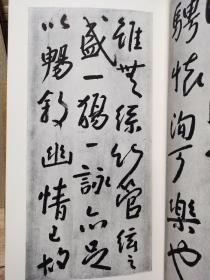 騁懷洵可樂也
雖無絲竹管弦之
盛一觴一詠亦足
以暢敘幽情已故